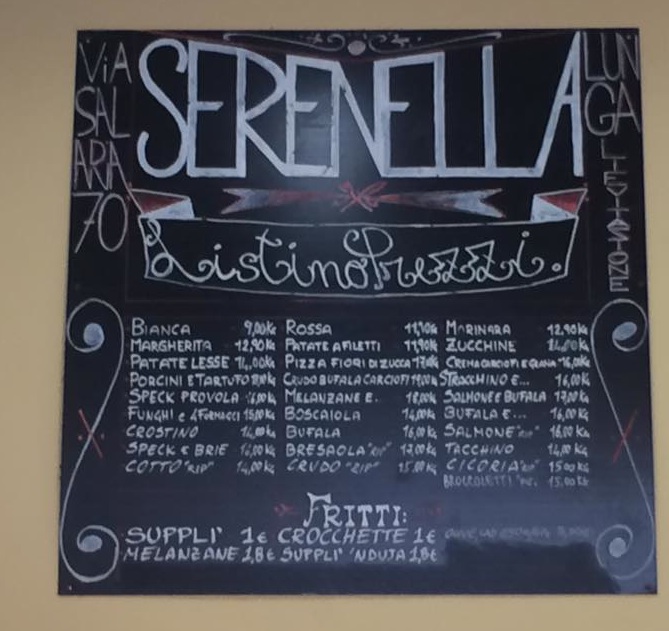 VIA SALARIA 70
SERENELLA
LUNGA LIEVITAZIONE
Listino Prezzi.
BIANCA 9,00 kg
MARGHERITA 12,90 kg
PATATE LESSE 14,00 kg
PORCINI E TARTUFO
SPECK PROVOLA 16,00 kg
FUNGHI E 4 FORMAGGI 15,00 kg
CROSTINO 14,00 kg
SPECK E BRIE 16,00 kg
COTTO "RIP" 14,00 kg
ROSSA 11,10 kg
PATATE A FILETTI 11,90 kg
PIZZA FIORI DI ZUCCA 17,00 kg
CRUDO BUFALA CARCIOFI 19,00 kg
MELANZANE E. 18,00 kg
BOSCAIOLA 14,00 kg
BUFALA 16,00 kg
BRESAOLA "RIP" 17,00 kg
CRUDO "RIP" 15,00 kg
MARINARA 12,90 kg
ZUCCHINE
CREMA CARCIOFI E GUANC. 16,00 kg
STRACCHINO E... 16,00 kg
SALMONE E BUFALA 17,00 kg
BUFALA E... 16,00 kg
SALMONE "RIP" 16,00 kg
TACCHINO 14,00 kg
CICORIA "RIP" 15,00 kg
BROCCOLETTI "RIP" 15,00 kg
FRITTI:
SUPPLI' 1€ CROCCHETTE 1€
MELANZANE 1,8€ SUPPLI' 'NDUJA 1,8€